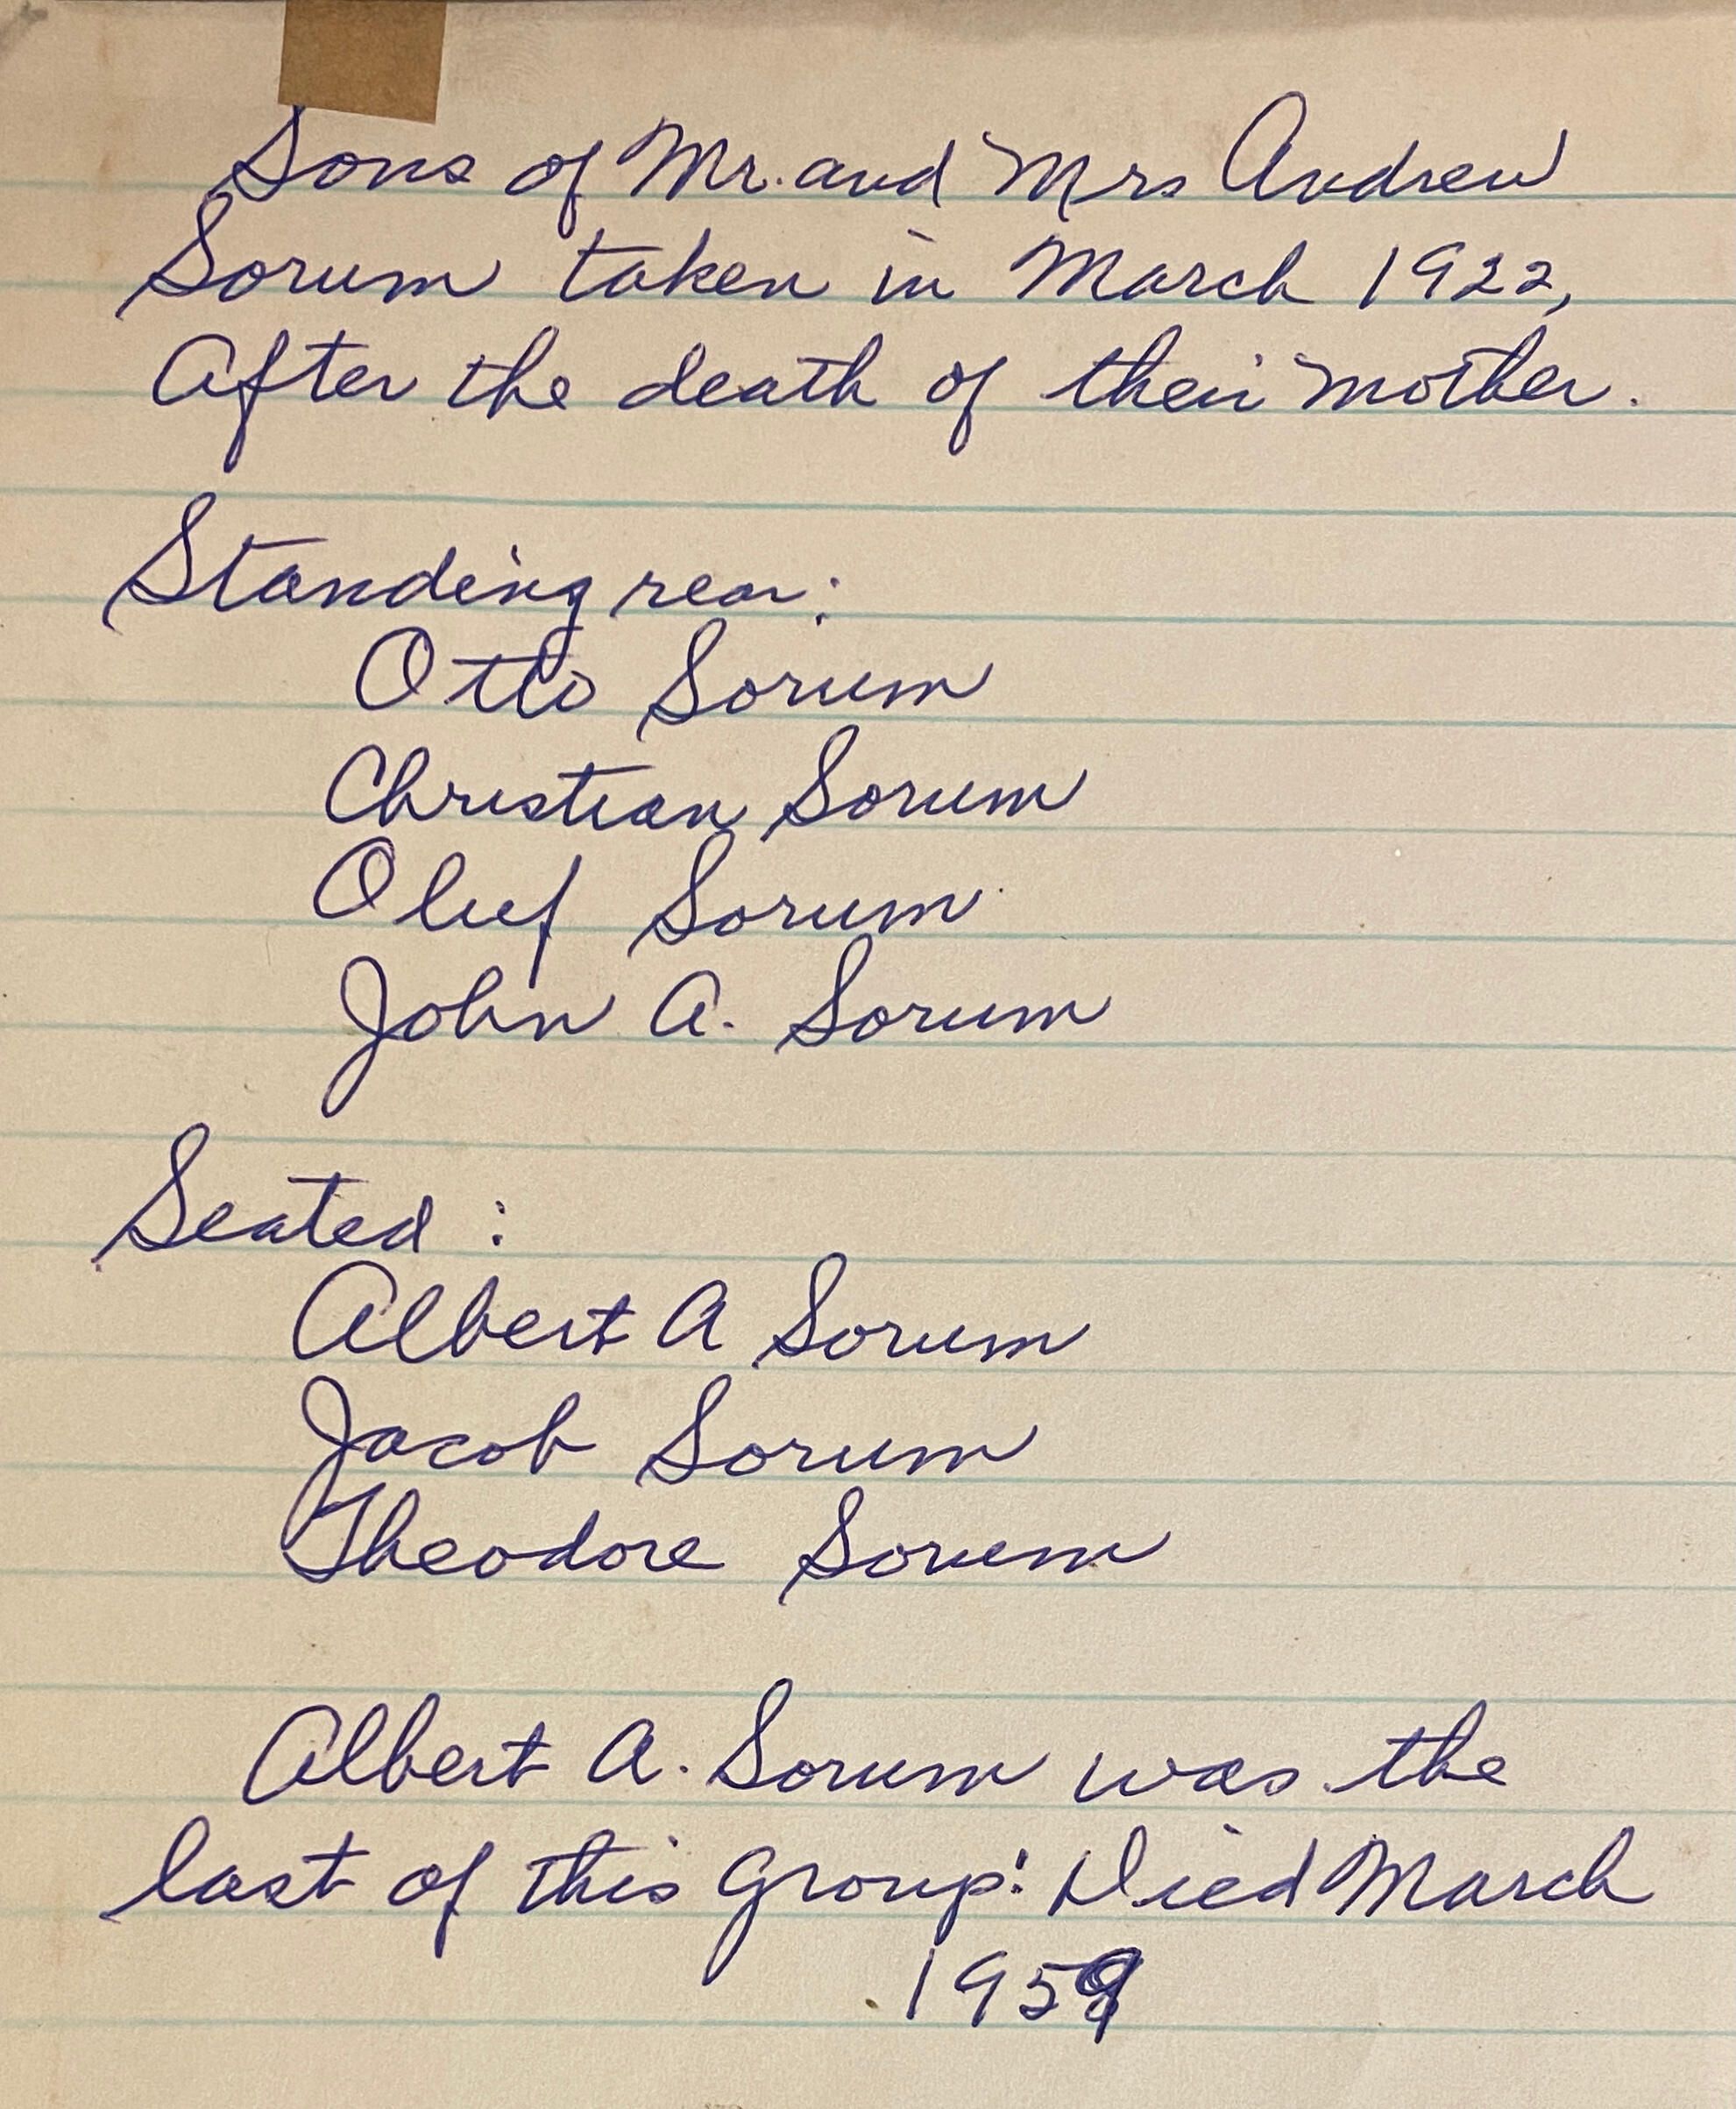 Sons of Mr. and Mrs Andrew
Sorum taken in March 1922,
After the death of their mother.
Standing rear:
Otto Sorum
Christian Sorum
Oluf Sorum
John A. Sorum
Seated:
Albert A Sorum
Jacob Sorum
Theodore Sorum
Albert A. Sorum was the
last of this group: Died March
1959